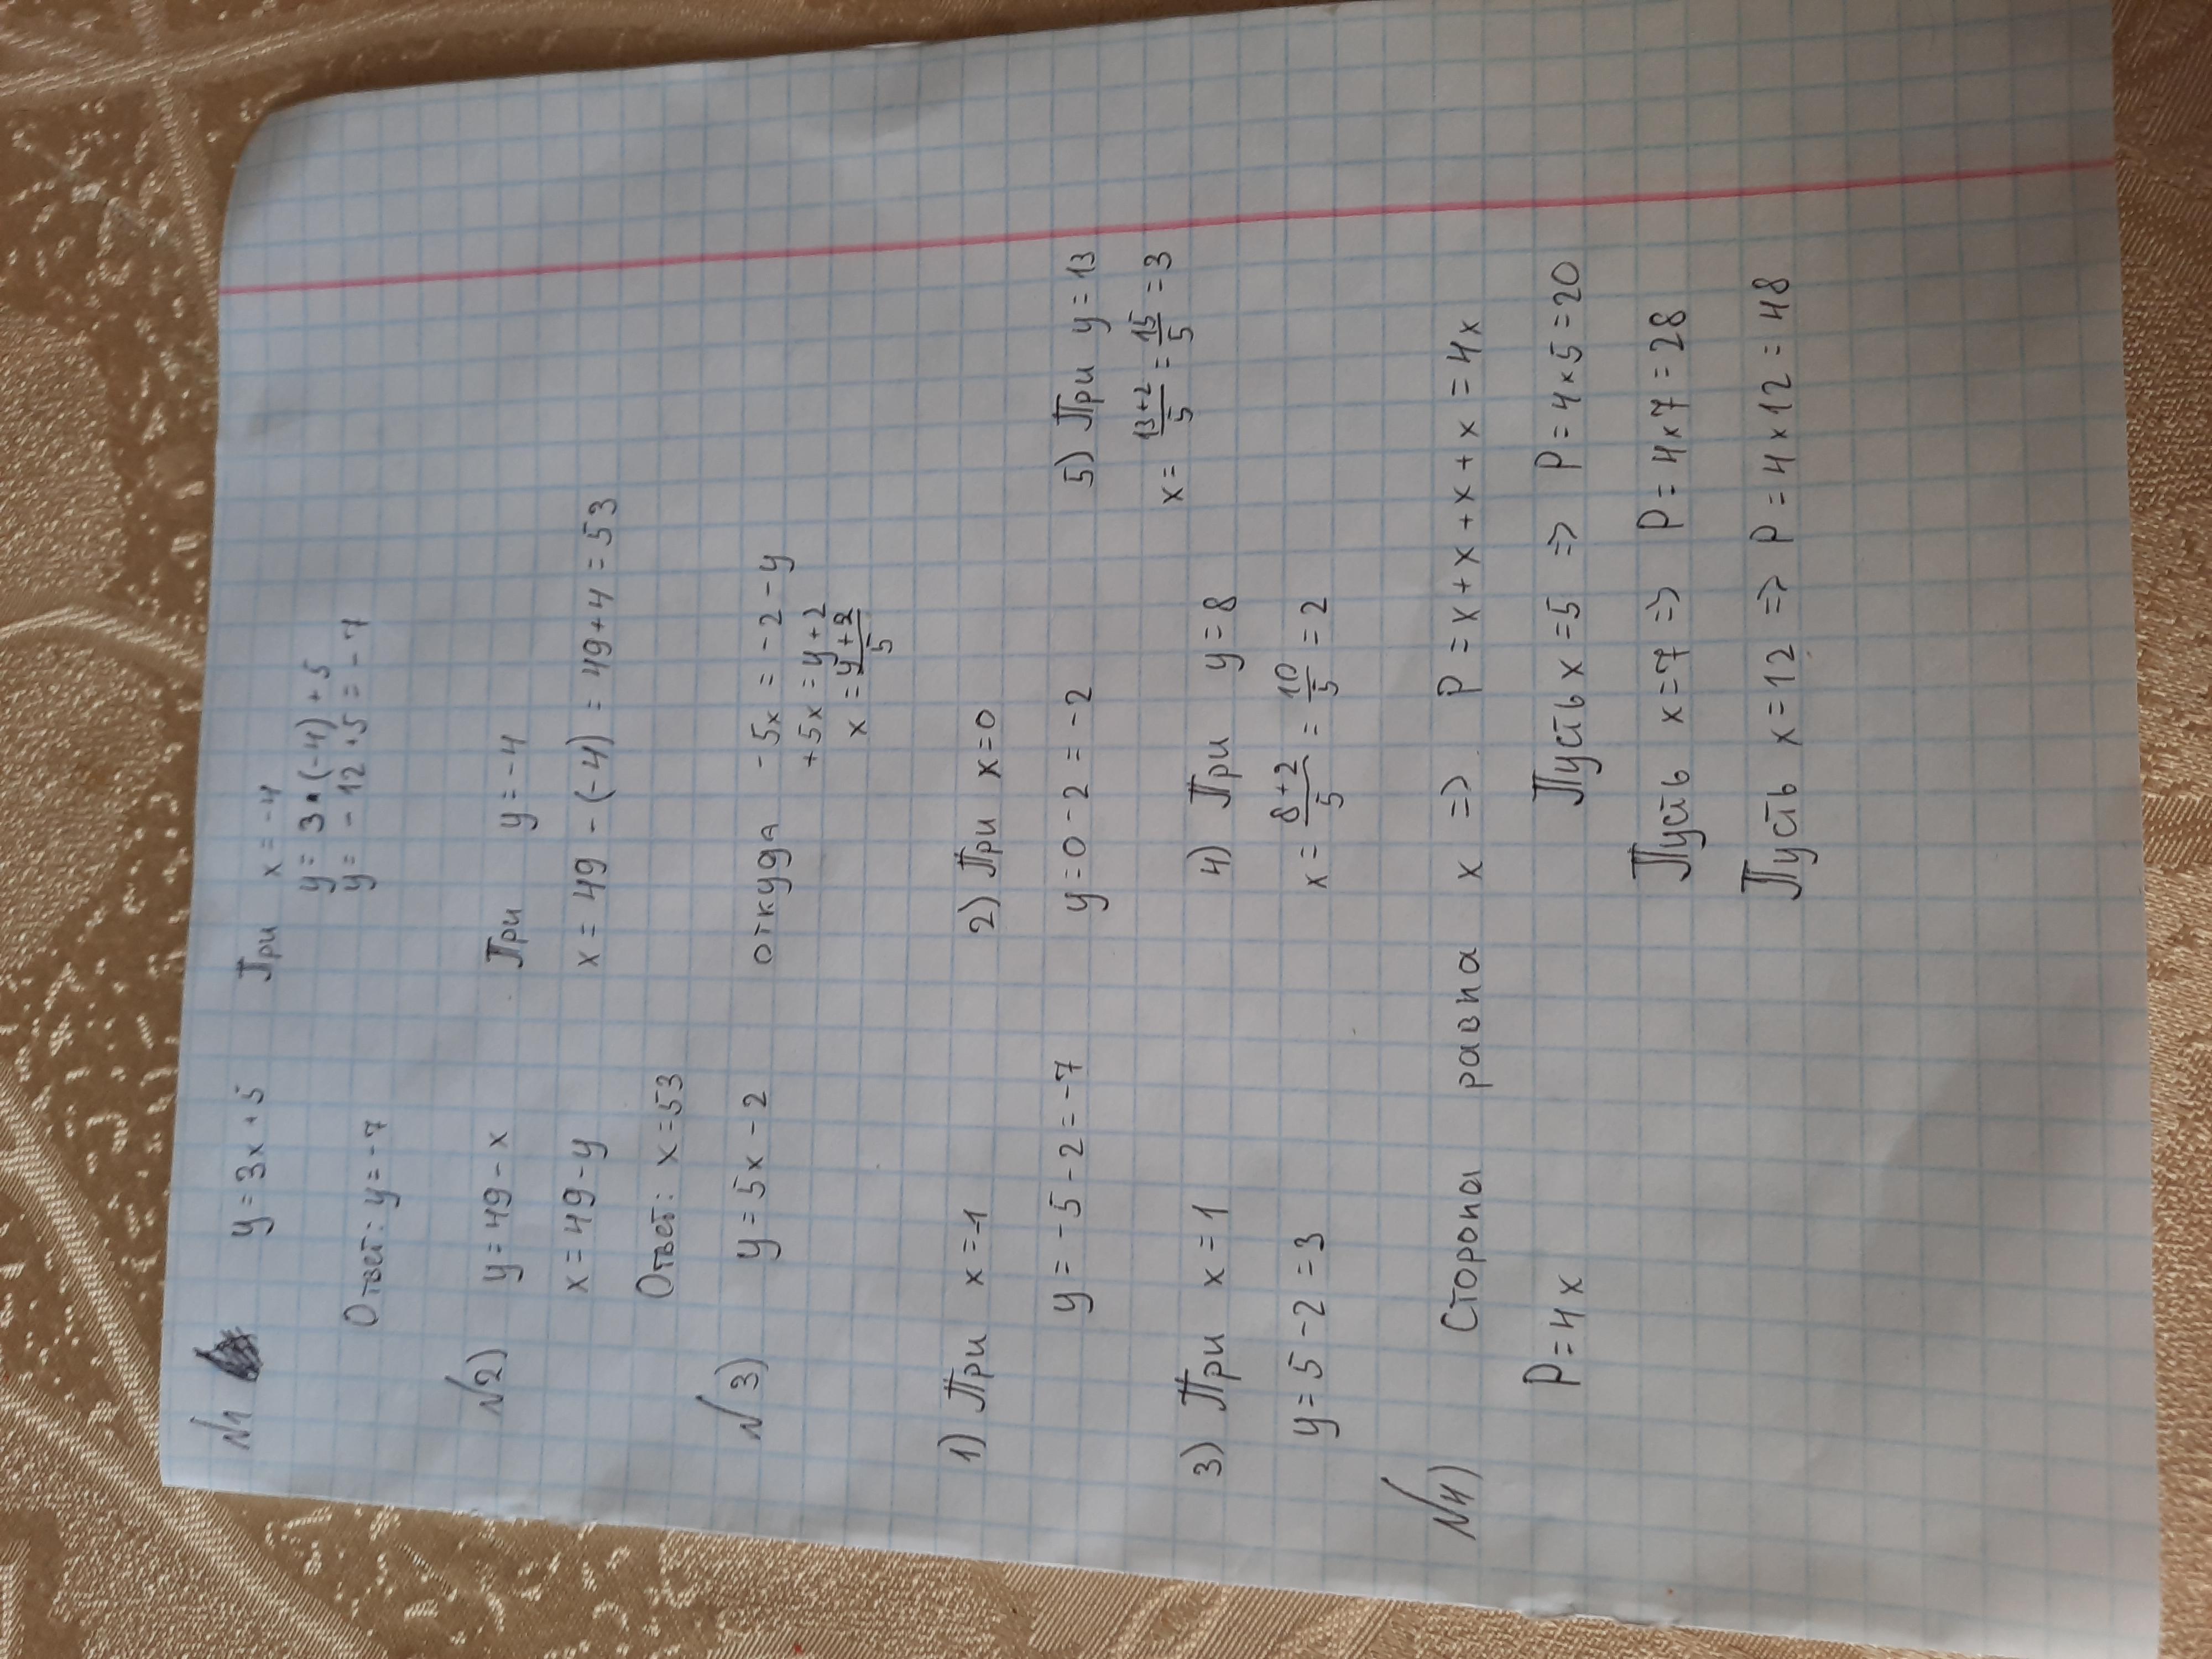 №1 y = 3x + 5 При x = -4
y = 3•(-4) + 5
Ответ: y = -7 y = -12 + 5 = -7
№2) y = 49 - x При y = -4
x = 49 - y x = 49 - (-4) = 49 + 4 = 53
Ответ: x = 53
№3) y = 5x - 2 откуда -5x = -2 - y
+5x = y + 2
x = y + 2 / 5
1) При x = -1 2) При x = 0 5) При y = 13
y = -5 - 2 = -7 y = 0 - 2 = -2 x = 13 + 2 / 5 = 15 / 5 = 3
3) При x = 1 4) При y = 8
y = 5 - 2 = 3 x = 8 + 2 / 5 = 10 / 5 = 2
№4) Сторона равна x => P = x + x + x + x = 4x
P = 4x Пусть x = 5 => P = 4 × 5 = 20
Пусть x = 7 => P = 4 × 7 = 28
Пусть x = 12 => P = 4 × 12 = 48